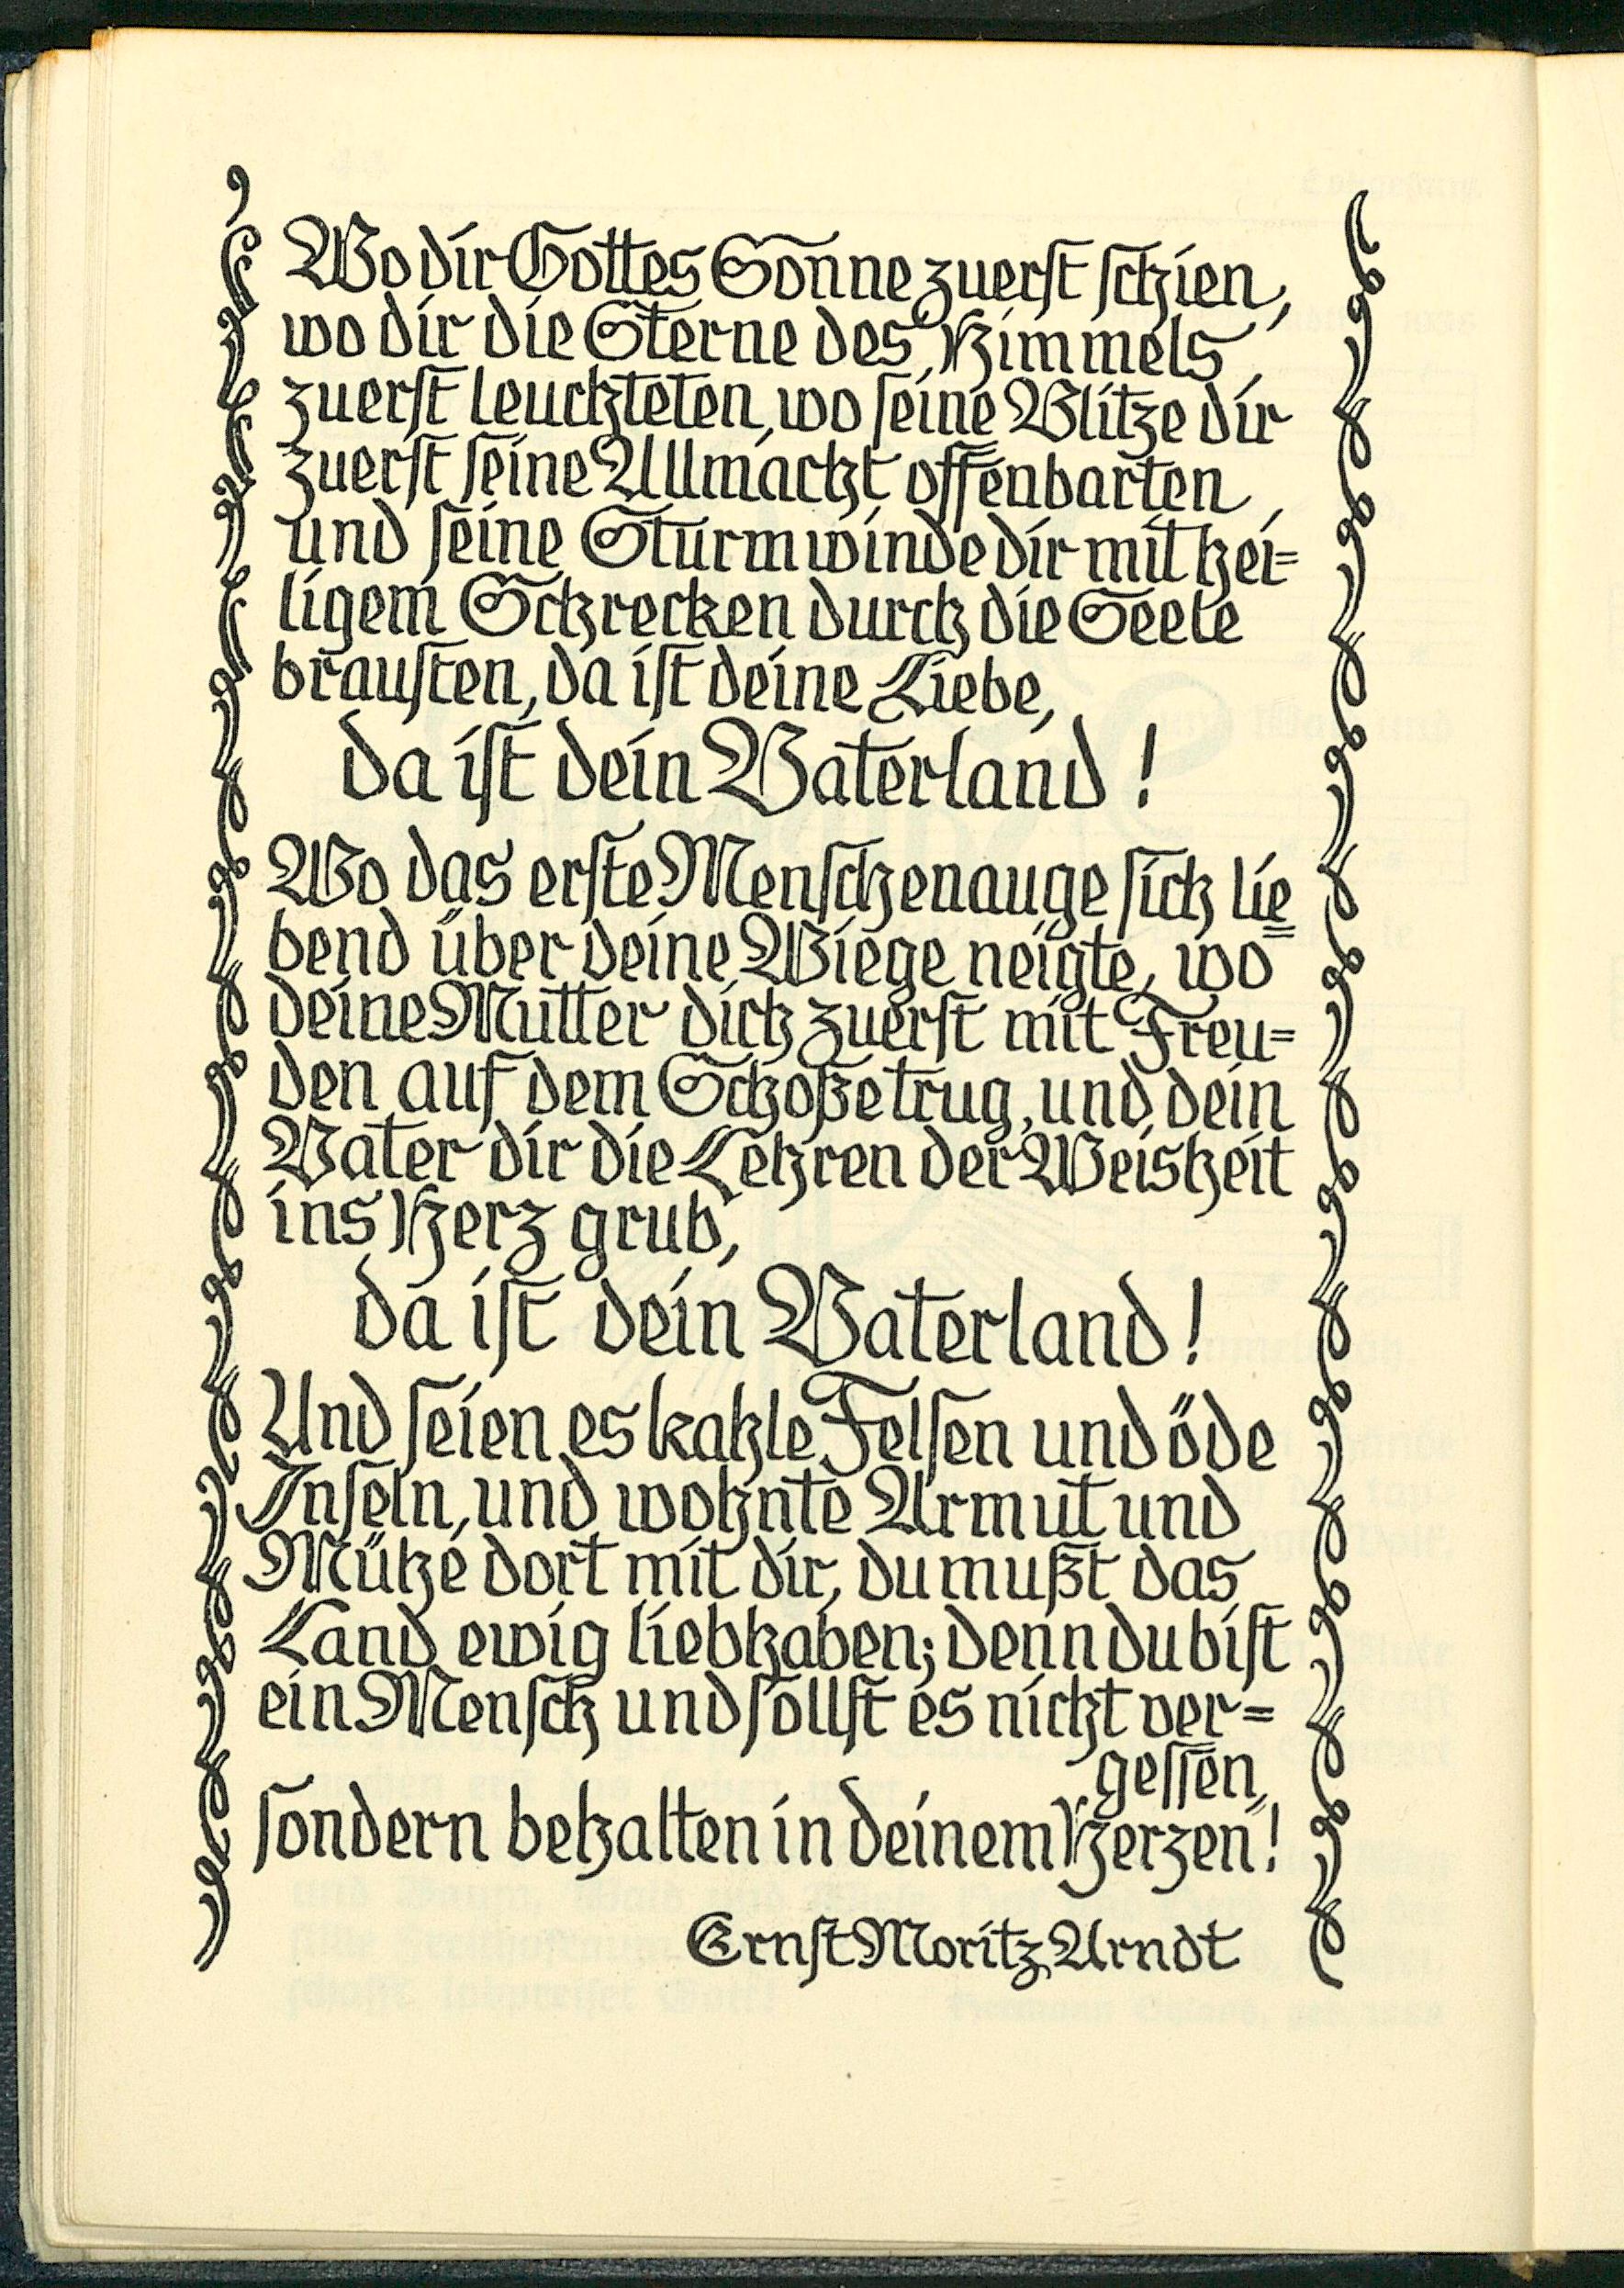 Wo dir Gottes Sonne zuerst schien,
wo dir die Sterne des Himmels
zuerst leuchteten, wo seine Blitze dir
zuerst seine Allmacht offenbarten
und seine Sturmwinde dir mit hei=
ligem Schrecken durch die Seele
brausten, da ist deine Liebe,
da ist dein Vaterland!
Wo das erste Menschenauge sich lie=
bend über deine Wiege neigte, wo
deine Mutter dich zuerst mit Freu=
den auf dem Schoße trug, und dein
Vater dir die Lehren der Weisheit
ins Herz grub,
da ist dein Vaterland!
Und seien es kahle Felsen und öde
Inseln, und wohnte Armut und
Mühe dort mit dir, du mußt das
Land ewig liebhaben; denn du bist
ein Mensch und sollst es nicht ver=
gessen,
sondern behalten in deinem Herzen!
Ernst Moritz Arndt